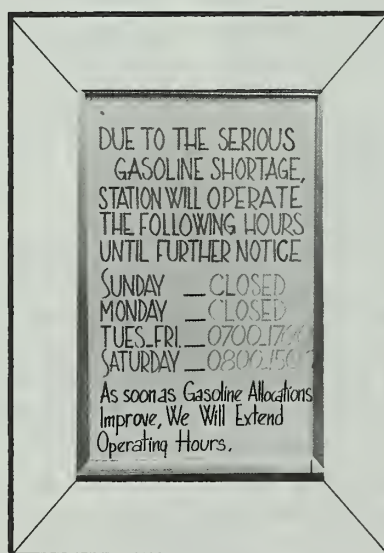 DUE TO THE SERIOUS
GASOLINE SHORTAGE,
STATION WILL OPERATE
THE FOLLOWING HOURS
UNTIL FURTHER NOTICE
SUNDAY — CLOSED
MONDAY — CLOSED
TUES-FRI. — 0700-1700
SATURDAY — 0800-1500
As soon as Gasoline Allocations
Improve, We Will Extend
Operating Hours.